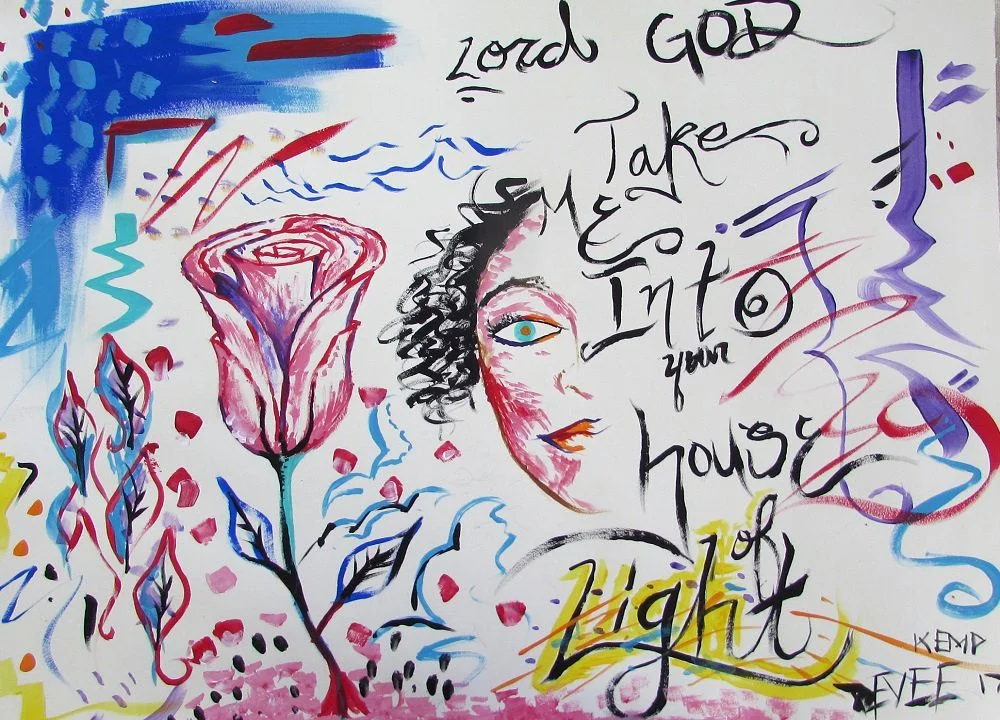 Lord GOD
Take
ME
Into
your
house
of
Light
KEMP
EVEE 17